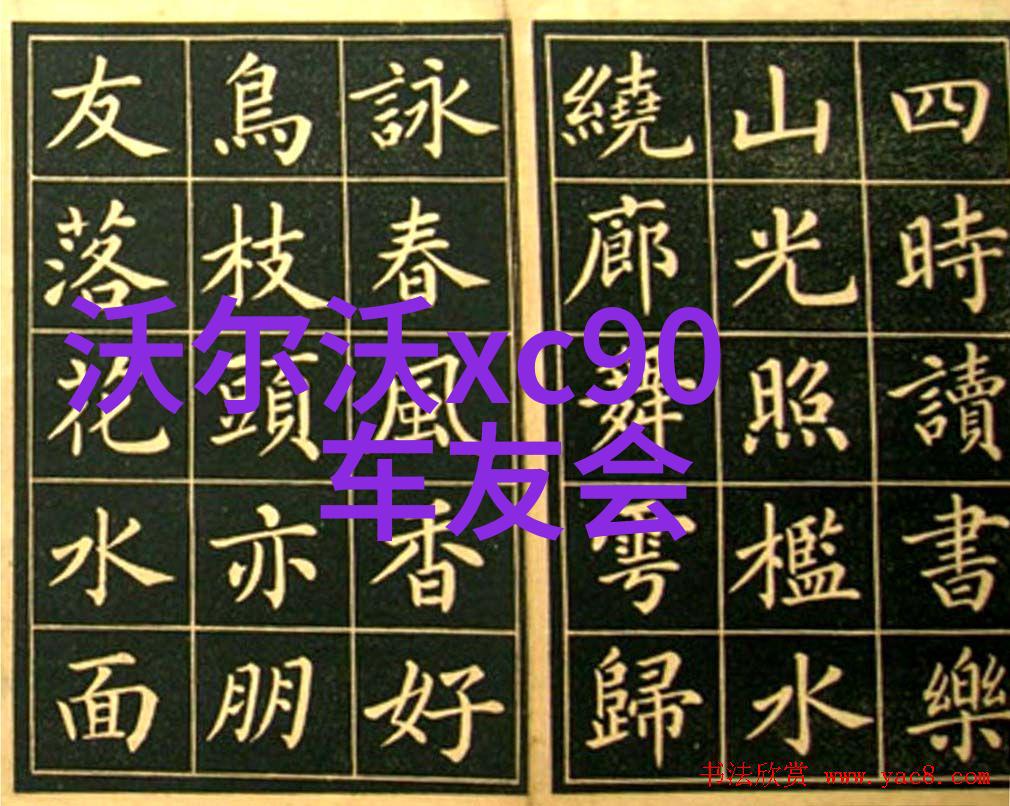 四時讀書樂
山光照檻水
繞廊舞雩歸
詠春風香好
鳥枝頭亦朋
友落花水面
沃尔沃xc90
车友会
书法欣赏 www.yac8.com